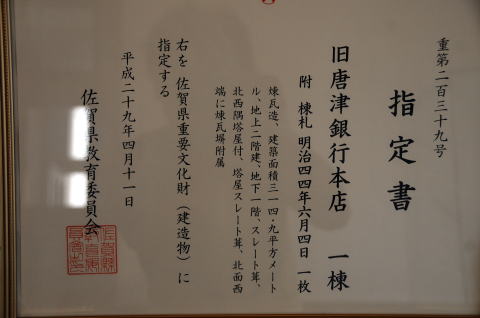 重第二百三十九号
指定書
旧唐津銀行本店 一棟
附 棟札 明治四四年六月四日 一枚
煉瓦造、建築面積三一四・九平方メート
ル、地上二階建、地下一階、スレート葺、
北西隅塔屋付、塔屋スレート葺、北面西
端に煉瓦塀附属
右を 佐賀県重要文化財(建造物)に
指定する
平成二十九年四月十一日
佐賀県教育委員会